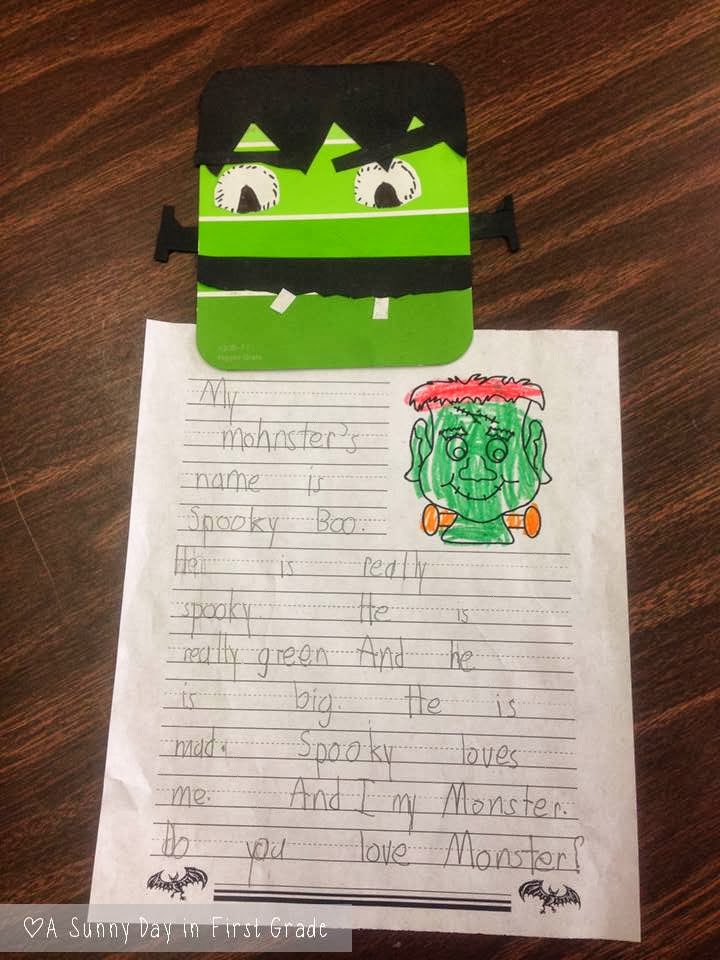 My
mohnster's
name is
Spooky Boo.
He is really
spooky. He is
really green And he
is big. He is
mad. Spooky loves
me. And I my Monster.
Do you love Monster?
♡A Sunny Day in First Grade